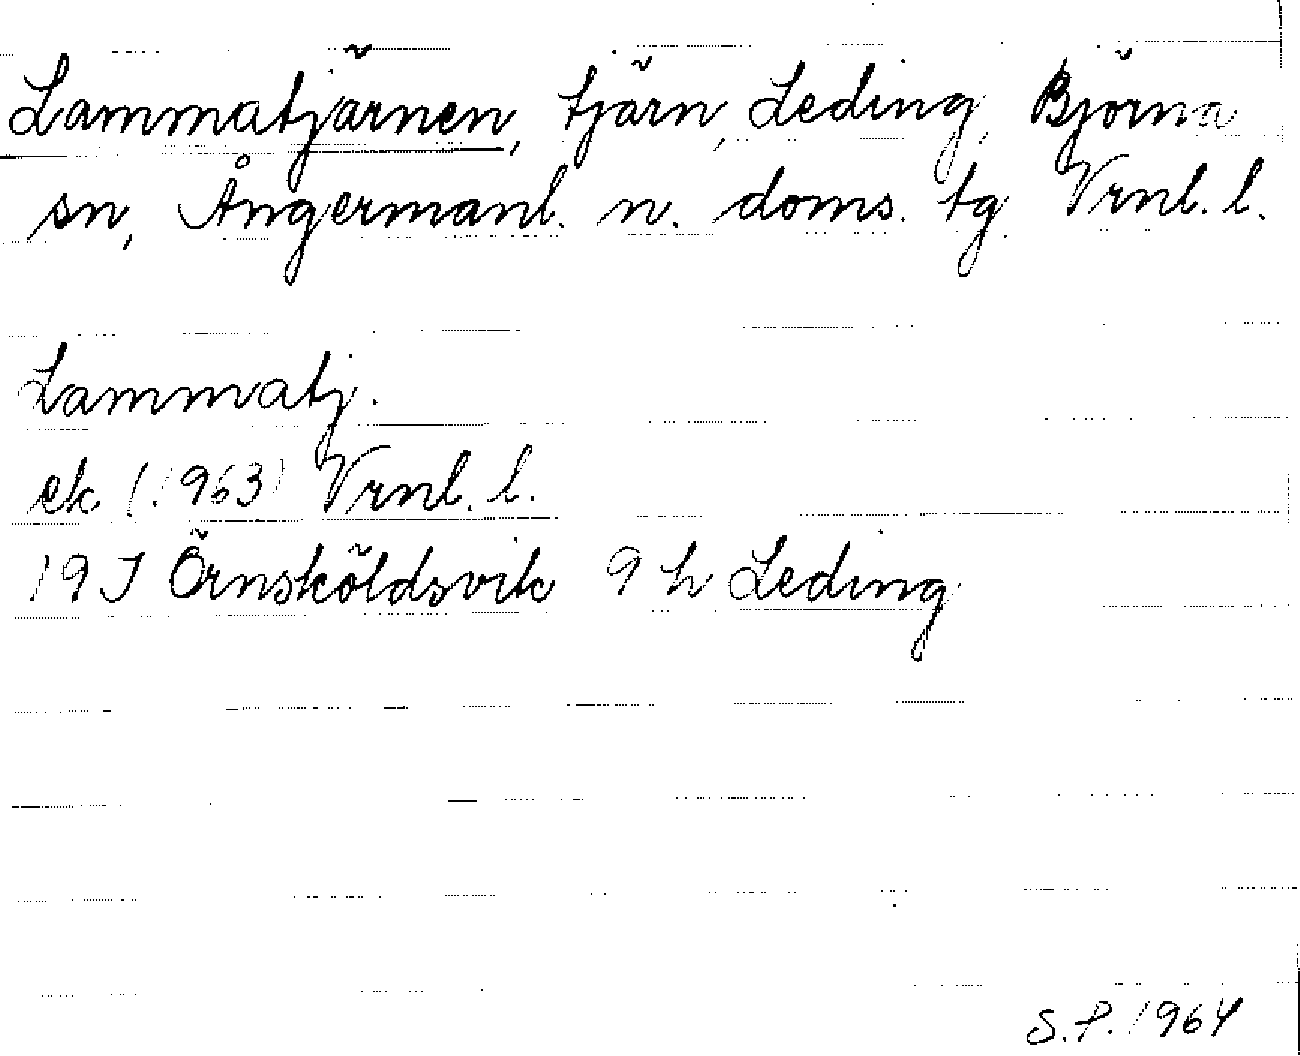 Lammatjärnen, tjärn, Leding, Björna
sn, Ångermanl. n. doms. tg. Vrnl. l.
Lammatj.
ek (1963) Vrnl. l.
19 J Örnsköldsvik 9 h Leding
S.P. 1964